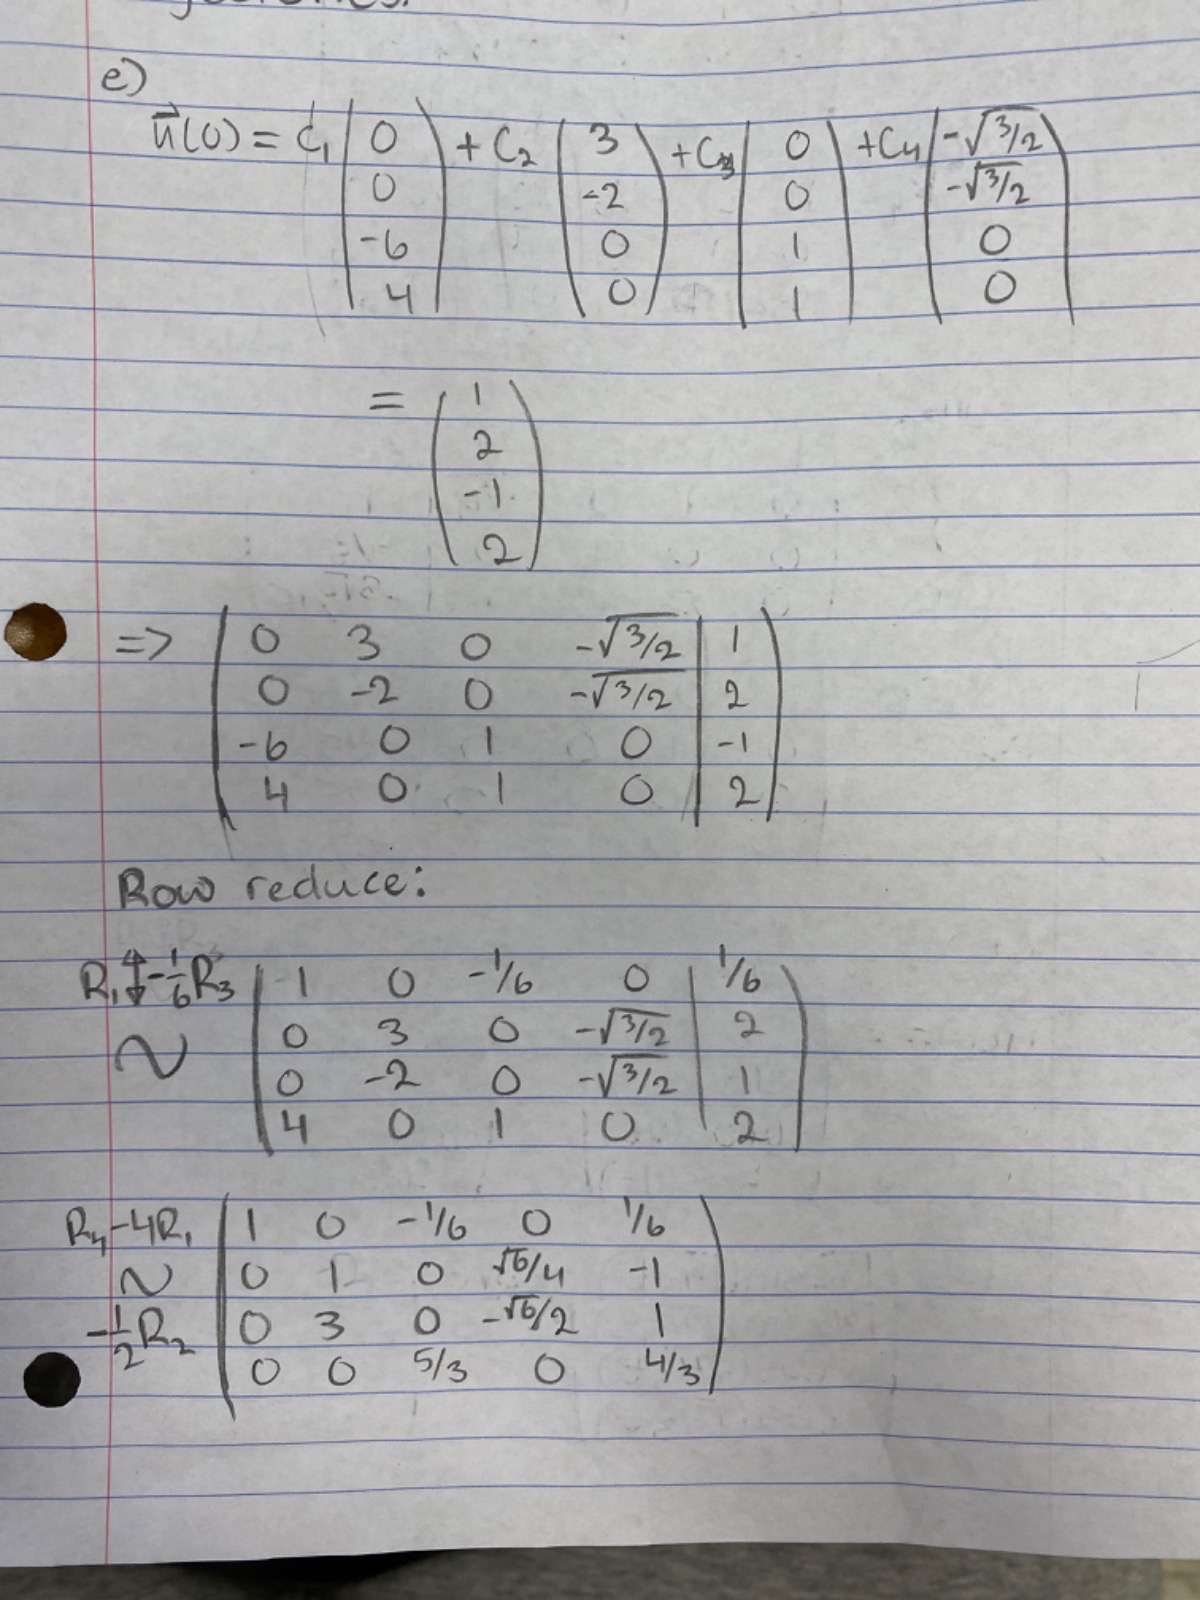 e)
u⃗(0) = C₁ ( 0 ) + C₂ ( 3 ) + C₃ ( 0 ) + C₄ ( -√3/2 )
0 -2 0 -√3/2
-6 0 1 0
4 0 1 0
= ( 1
2
-1
2 )
=> ( 0 3 0 -√3/2 | 1 )
0 -2 0 -√3/2 | 2
-6 0 1 0 | -1
4 0 1 0 | 2
Row reduce:
R₁ ↕ -1/6 R₃ ( 1 0 -1/6 0 | 1/6 )
~ 0 3 0 -√3/2 | 2
0 -2 0 -√3/2 | 1
4 0 1 0 | 2
R₄-4R₁ ( 1 0 -1/6 0 1/6 )
~ 0 1 0 √6/4 -1
-1/2 R₂ 0 3 0 -√6/2 1
0 0 5/3 0 4/3